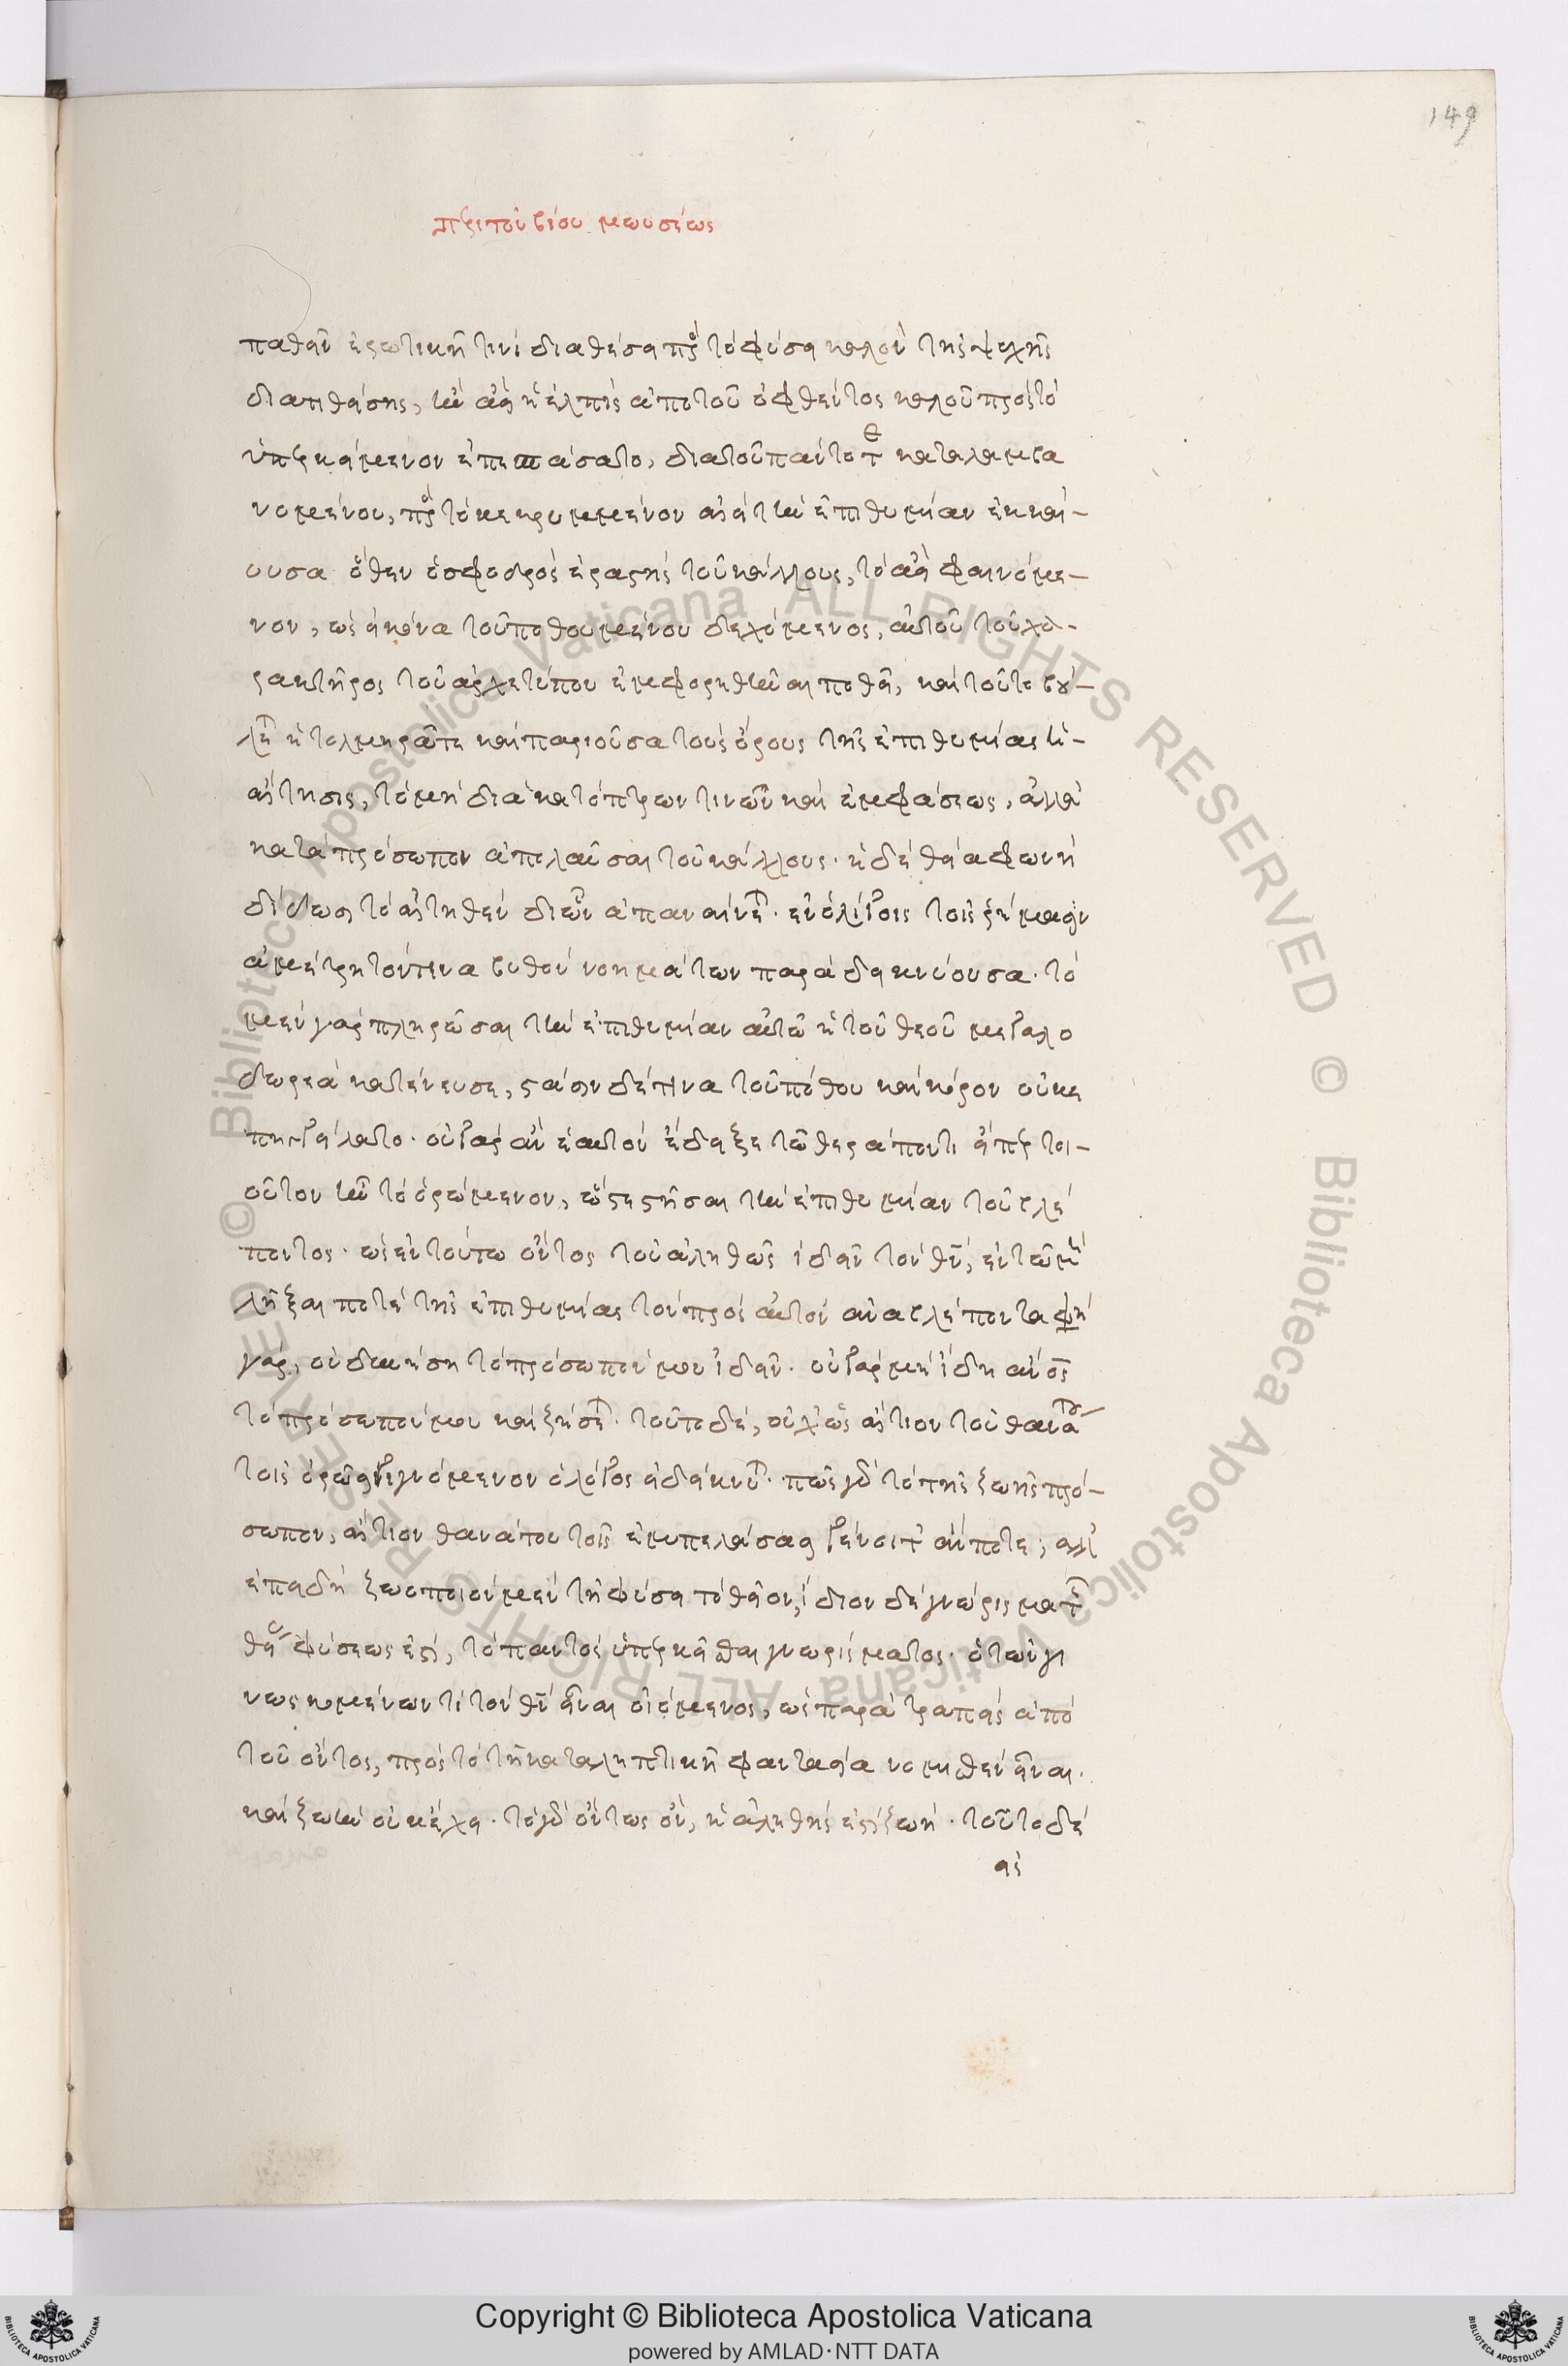 149
περι του βίου μωυσέως
παθεῖν ἐρωτικῆ τινὶ διαθέσει πρὸς τὸ φύσει καλὸν τῆς ψυχῆς
διατιθείσης, ἣν ἀεὶ ἡ ἐλπὶς ἀπὸ τοῦ ὀφθέντος καλοῦ πρὸς τὸ
ὑπερκείμενον ἐπεσπάσατο, διὰ τοῦ πάντοτε καταλαμβα
νομένου, πρὸς τὸ κεκρυμμένον ἀεὶ τὴν ἐπιθυμίαν ἐκκαί-
ουσα ὅθεν ὁ σφοδρὸς ἐραστὴς τοῦ κάλλους, τὸ ἀεὶ φαινόμε-
νον, ὡς εἰκόνα τοῦ ποθουμένου δεχόμενος, αὐτοῦ τοῦ χα-
ρακτῆρος τοῦ ἀρχετύπου ἐμφορηθῆναι ποθεῖ, καὶ τοῦτο βού-
λεται ἡ τολμηρά τε καὶ παριοῦσα τοὺς ὅρους τῆς ἐπιθυμίας ἡ-
αίτησις, τὸ μὴ διὰ κατόπτρων τινῶν καὶ ἐμφάσεως, ἀλλὰ
κατὰ πρόσωπον ἀπολαῦσαι τοῦ κάλλους. ἡ δὲ θεία φωνὴ
δίδωσι τὸ αἰτηθὲν δι ὧν ἀπαναίνεται. ἐν ὀλίγοις τοῖς ῥήμασιν
ἀμέτρητόν τινα βυθὸν νοημάτων παραδεικνύουσα. τὸ
μὲν γὰρ πληρῶσαι τὴν ἐπιθυμίαν αὐτῶ ἡ τοῦ θεοῦ μεγαλο
δωρεὰ κατένευσε, στάσιν δέ τινα τοῦ πόθου καὶ κόρον οὐκ ε
πηγγείλατο. οὐ γὰρ ἂν ἑαυτὸν ἔδειξε τῶ θεράποντι εἴπερ τοι-
οῦτον ἦν τὸ ὁρώμενον, ὥστε στῆσαι τὴν ἐπιθυμίαν τοῦ βλέ
ποντος. ὡς ἐν τούτω ὄντος τοῦ ἀληθῶς ἰδεῖν τὸν θν, ἐν τῶ μὴ
λῆξαι ποτὲ τῆς ἐπιθυμίας τὸν πρὸς αὐτὸν ἀναβλέποντα φη
γάρ, οὐ δυνήση τὸ πρόσωπόν μου ἰδεῖν. οὐ γὰρ μὴ ἴδη ανος
τὸ πρόσωπόν μου καὶ ζήσεται. τοῦτο δὲ, οὐχ ὡς αἴτιον τοῦ θανάτου
τοῖς ὁρῶσι γιγνόμενον ὁ λόγος ἐδείκνυται. πῶς γὰρ τὸ τῆς ζωῆς πρό-
σωπον, αἴτιον θανάτου τοῖς ἐμπελάσασι γένοιτ ἄν ποτε; ἀλλ
ἐπειδὴ ζωοποιὸν μὲν τῆ φύσει τὸ θεῖον, ἴδιον δὲ γνώρισμα τῆς
θείας φύσεως ἐστὶ, τὸ παντὸς ὑπερκεῖσθαι γνωρίσματος. ὁ τῶν γι
νωσκομένων τὶ τὸν θν εἶναι οἰόμενος, ὡς παρατραπεὶς ἀπὸ
τοῦ ὄντος, πρὸς τὸ τῆ καταληπτικῆ φαντασία νομισθὲν εἶναι.
καὶ ζωὴν οὐκ ἔχει. τὸ γὰρ ὄντως ὂν, ἡ ἀληθής ἐστι ζωή. τοῦτο δὲ
εἰς
Copyright © Biblioteca Apostolica Vaticana
powered by AMLAD·NTT DATA